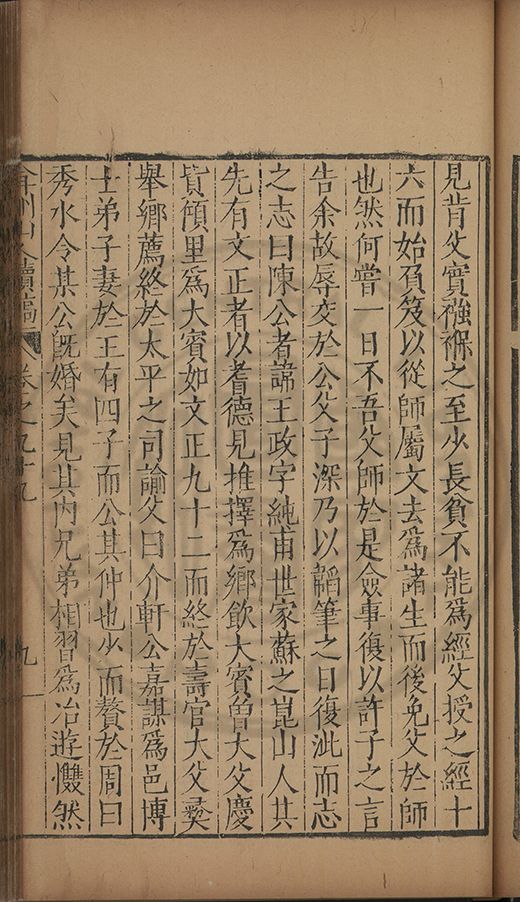 見背父實襁褓之至少長貧不能爲經父授之經十
六而始負笈以從師屬文去爲諸生而後免父於師
也然何嘗一日不吾父師於是僉事復以許子之言
告余故辱交於公父子深乃以韜筆之日復泚而志
之志曰陳公者諱王政字純甫世家蘇之崑山人其
先有文正者以耆德見推擇爲鄉飲大賓曾大父慶
貲傾里爲大賓如文正九十二而終於壽官大父奭
舉鄉薦終於太平之司諭父曰介軒公嘉謀爲邑博
士弟子妻於王有四子而公其仲也少而贅於周曰
秀水令某公旣婚矣見其內兄弟相習爲冶遊戄然
弇州山人續稿 卷之九十九 九